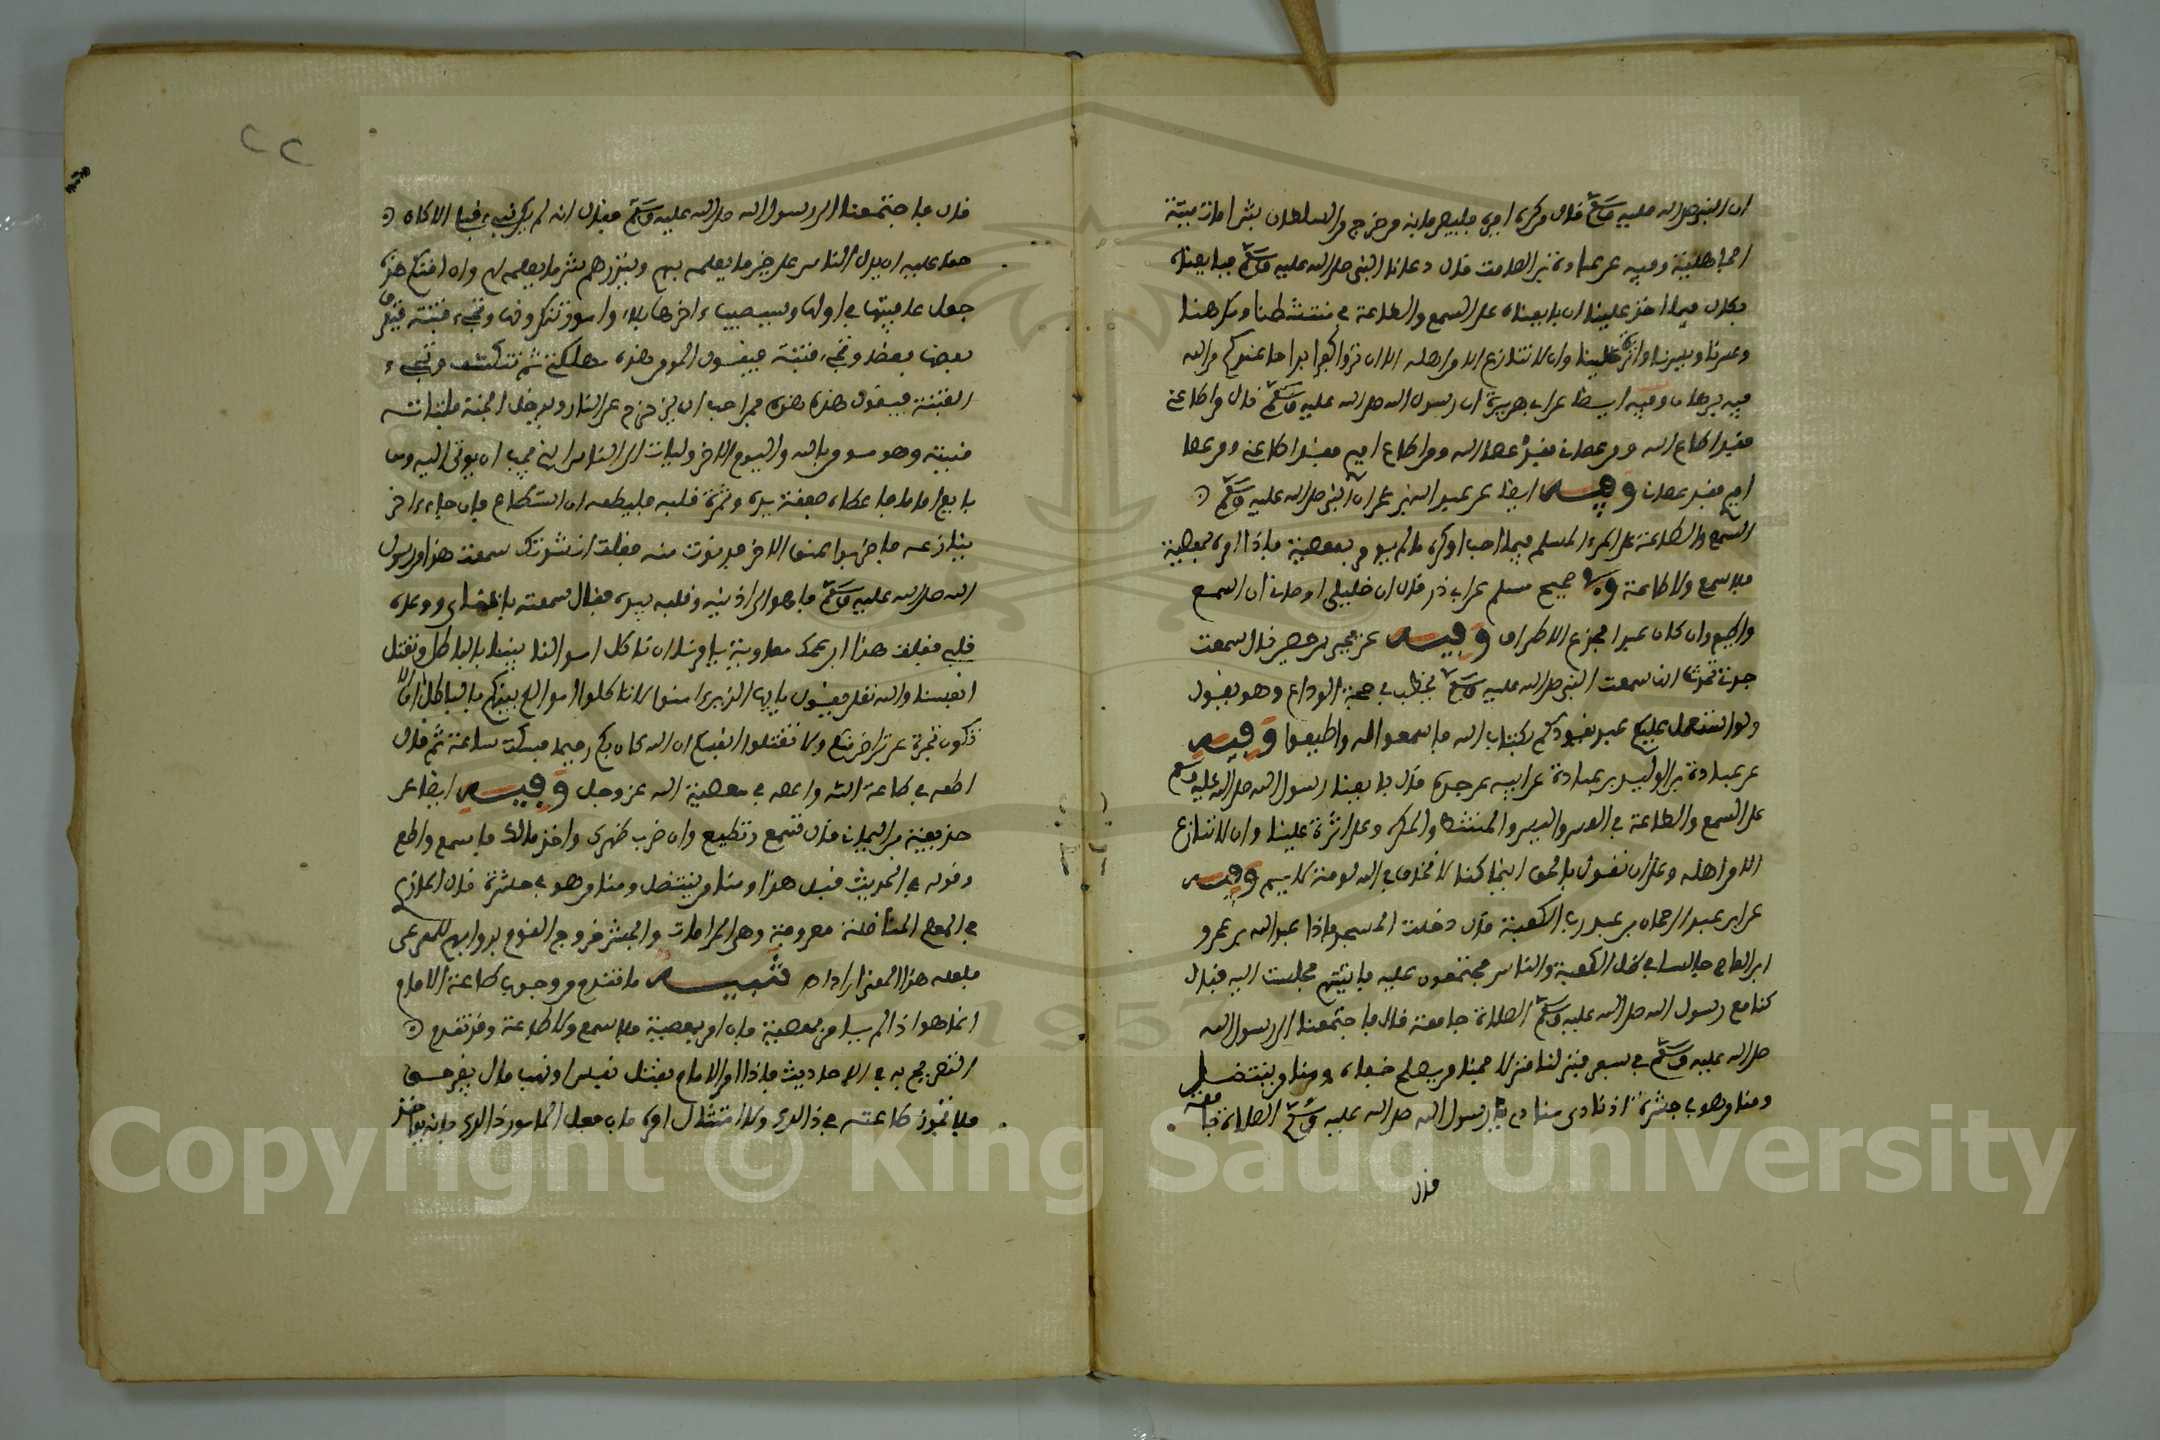 ان النبي صلى الله عليه وسلم قال من كره من اميره فليصبر فانه من خرج من السلطان شبرا مات ميتة
الجاهلية وفيه عن عبادة بن الصامت قال دعانا النبي صلى الله عليه وسلم فبايعناه
فكان فيما اخذ علينا ان بايعناه على السمع والطاعة في منشطنا ومكرهنا
وعسرنا ويسرنا واثرة علينا وان لا ننازع الامر اهله الا ان تروا كفرا بواحا عندكم من الله
فيه برهان وفيه ايضا عن ابي هريرة ان رسول الله صلى الله عليه وسلم قال من اطاعني
فقد اطاع الله ومن عصاني فقد عصا الله ومن اطاع اميري فقد اطاعني ومن عصا
اميري فقد عصاني وفيه ايضا عن عبد الله بن عمر ان النبي صلى الله عليه وسلم
السمع والطاعة على المرء المسلم فيما احب او كره ما لم يومر بمعصية فاذا امر بمعصية
فلا سمع ولا طاعة وفي صحيح مسلم عن ابي ذر قال ان خليلي اوصاني ان اسمع
واطيع وان كان عبدا مجدع الاطراف وفيه عن يحيى بن حصين قال سمعت
جدتي تحدث انها سمعت النبي صلى الله عليه وسلم يخطب في حجة الوداع وهو يقول
ولو استعمل عليكم عبد يقودكم بكتاب الله فاسمعوا له واطيعوا وفيه
عن عبادة بن الوليد بن عبادة عن ابيه عن جده قال بايعنا رسول الله صلى الله عليه وسلم
على السمع والطاعة في العسر واليسر والمنشط والمكره وعلى اثرة علينا وان لا ننازع
الامر اهله وعلى ان نقول بالحق اينما كنا لا نخاف في الله لومة لايم وفيه
عن ابن عبد الرحمان بن عبد رب الكعبة قال دخلت المسجد فاذا عبد الله بن عمرو
ابن العاصي جالسا في ظل الكعبة والناس مجتمعون عليه فاتيتهم فجلست اليه فقال
كنا مع رسول الله صلى الله عليه وسلم الصلاة جامعة قال فاجتمعنا الى رسول الله
صلى الله عليه وسلم في سفر فنزلنا منزلا فمنا من يصلح خباءه ومنا من ينتضل
ومنا من هو في جشره اذ نادى منادي رسول الله صلى الله عليه وسلم الصلاة جامعة
قال
٢٢
قال فاجتمعنا الى رسول الله صلى الله عليه وسلم فقال انه لم يكن نبي قبلي الا كان
حقا عليه ان يدل الناس على خير ما يعلمه لهم وينذرهم شر ما يعلمه لهم وان امتكم هذه
جعل عافيتها في اولها وسيصيب ءاخرها بلاء وامور تنكرونها وتجيء فتنة فيرقق
بعضها بعضا وتجيء فتنة فيقول المومن هذه مهلكتي ثم تنكشف وتجيء
الفتنة فيقول هذه هذه فمن احب ان يزحزح عن النار ويدخل الجنة فلتاته
منيته وهو مومن بالله واليوم الاخر وليات الى الناس الذي يحب ان يوتى اليه ومن
بايع اماما فاعطاه صفقة يده وثمرة قلبه فليطعه ان استطاع فان جاء ءاخر
ينازعه فاضربوا عنق الاخر فدنوت منه فقلت انشدتك سمعت هذا من رسول
الله صلى الله عليه وسلم فاهوى الى اذنيه وقلبه بيده فقال سمعته باذناي ووعاه
قلبي فقلت هذا ابن عمك معاوية يامرنا ان ناكل اموالنا بيننا بالباطل ونقتل
انفسنا والله تعلى يقول يايها الذين ءامنوا لا تاكلوا اموالكم بينكم بالباطل الا ان
تكون تجرة عن تراض منكم ولا تقتلوا انفسكم ان الله كان بكم رحيما فسكت ساعة ثم قال
اطعه في طاعة الله واعصه في معصية الله عز وجل وفيه ايضا عن
حذيفة بن اليمان قال تسمع وتطيع وان ضرب ظهرك واخذ مالك فاسمع واطع
وقوله في الحديث قبل هذا ومنا من ينتضل ومنا من هو في جشره قال المازري
في المعلم المناضلة معروفة وهي المرامات والجشر خروج القوم بدوابهم للمرعى
فلعله هذا المعنى اراد تنبيه ما تقدم من وجوب طاعة الامام
انما هو اذا لم يامر بمعصية فان امر بمعصية فلا سمع ولا طاعة وقد تقدم
التصريح به في الاحاديث فاذا امر الامام بقتل نفس او نهب مال بغير حق
فلا تجوز طاعته في ذالك ولا امتثال امره فان فعل المامور ذالك فانه يواخذ